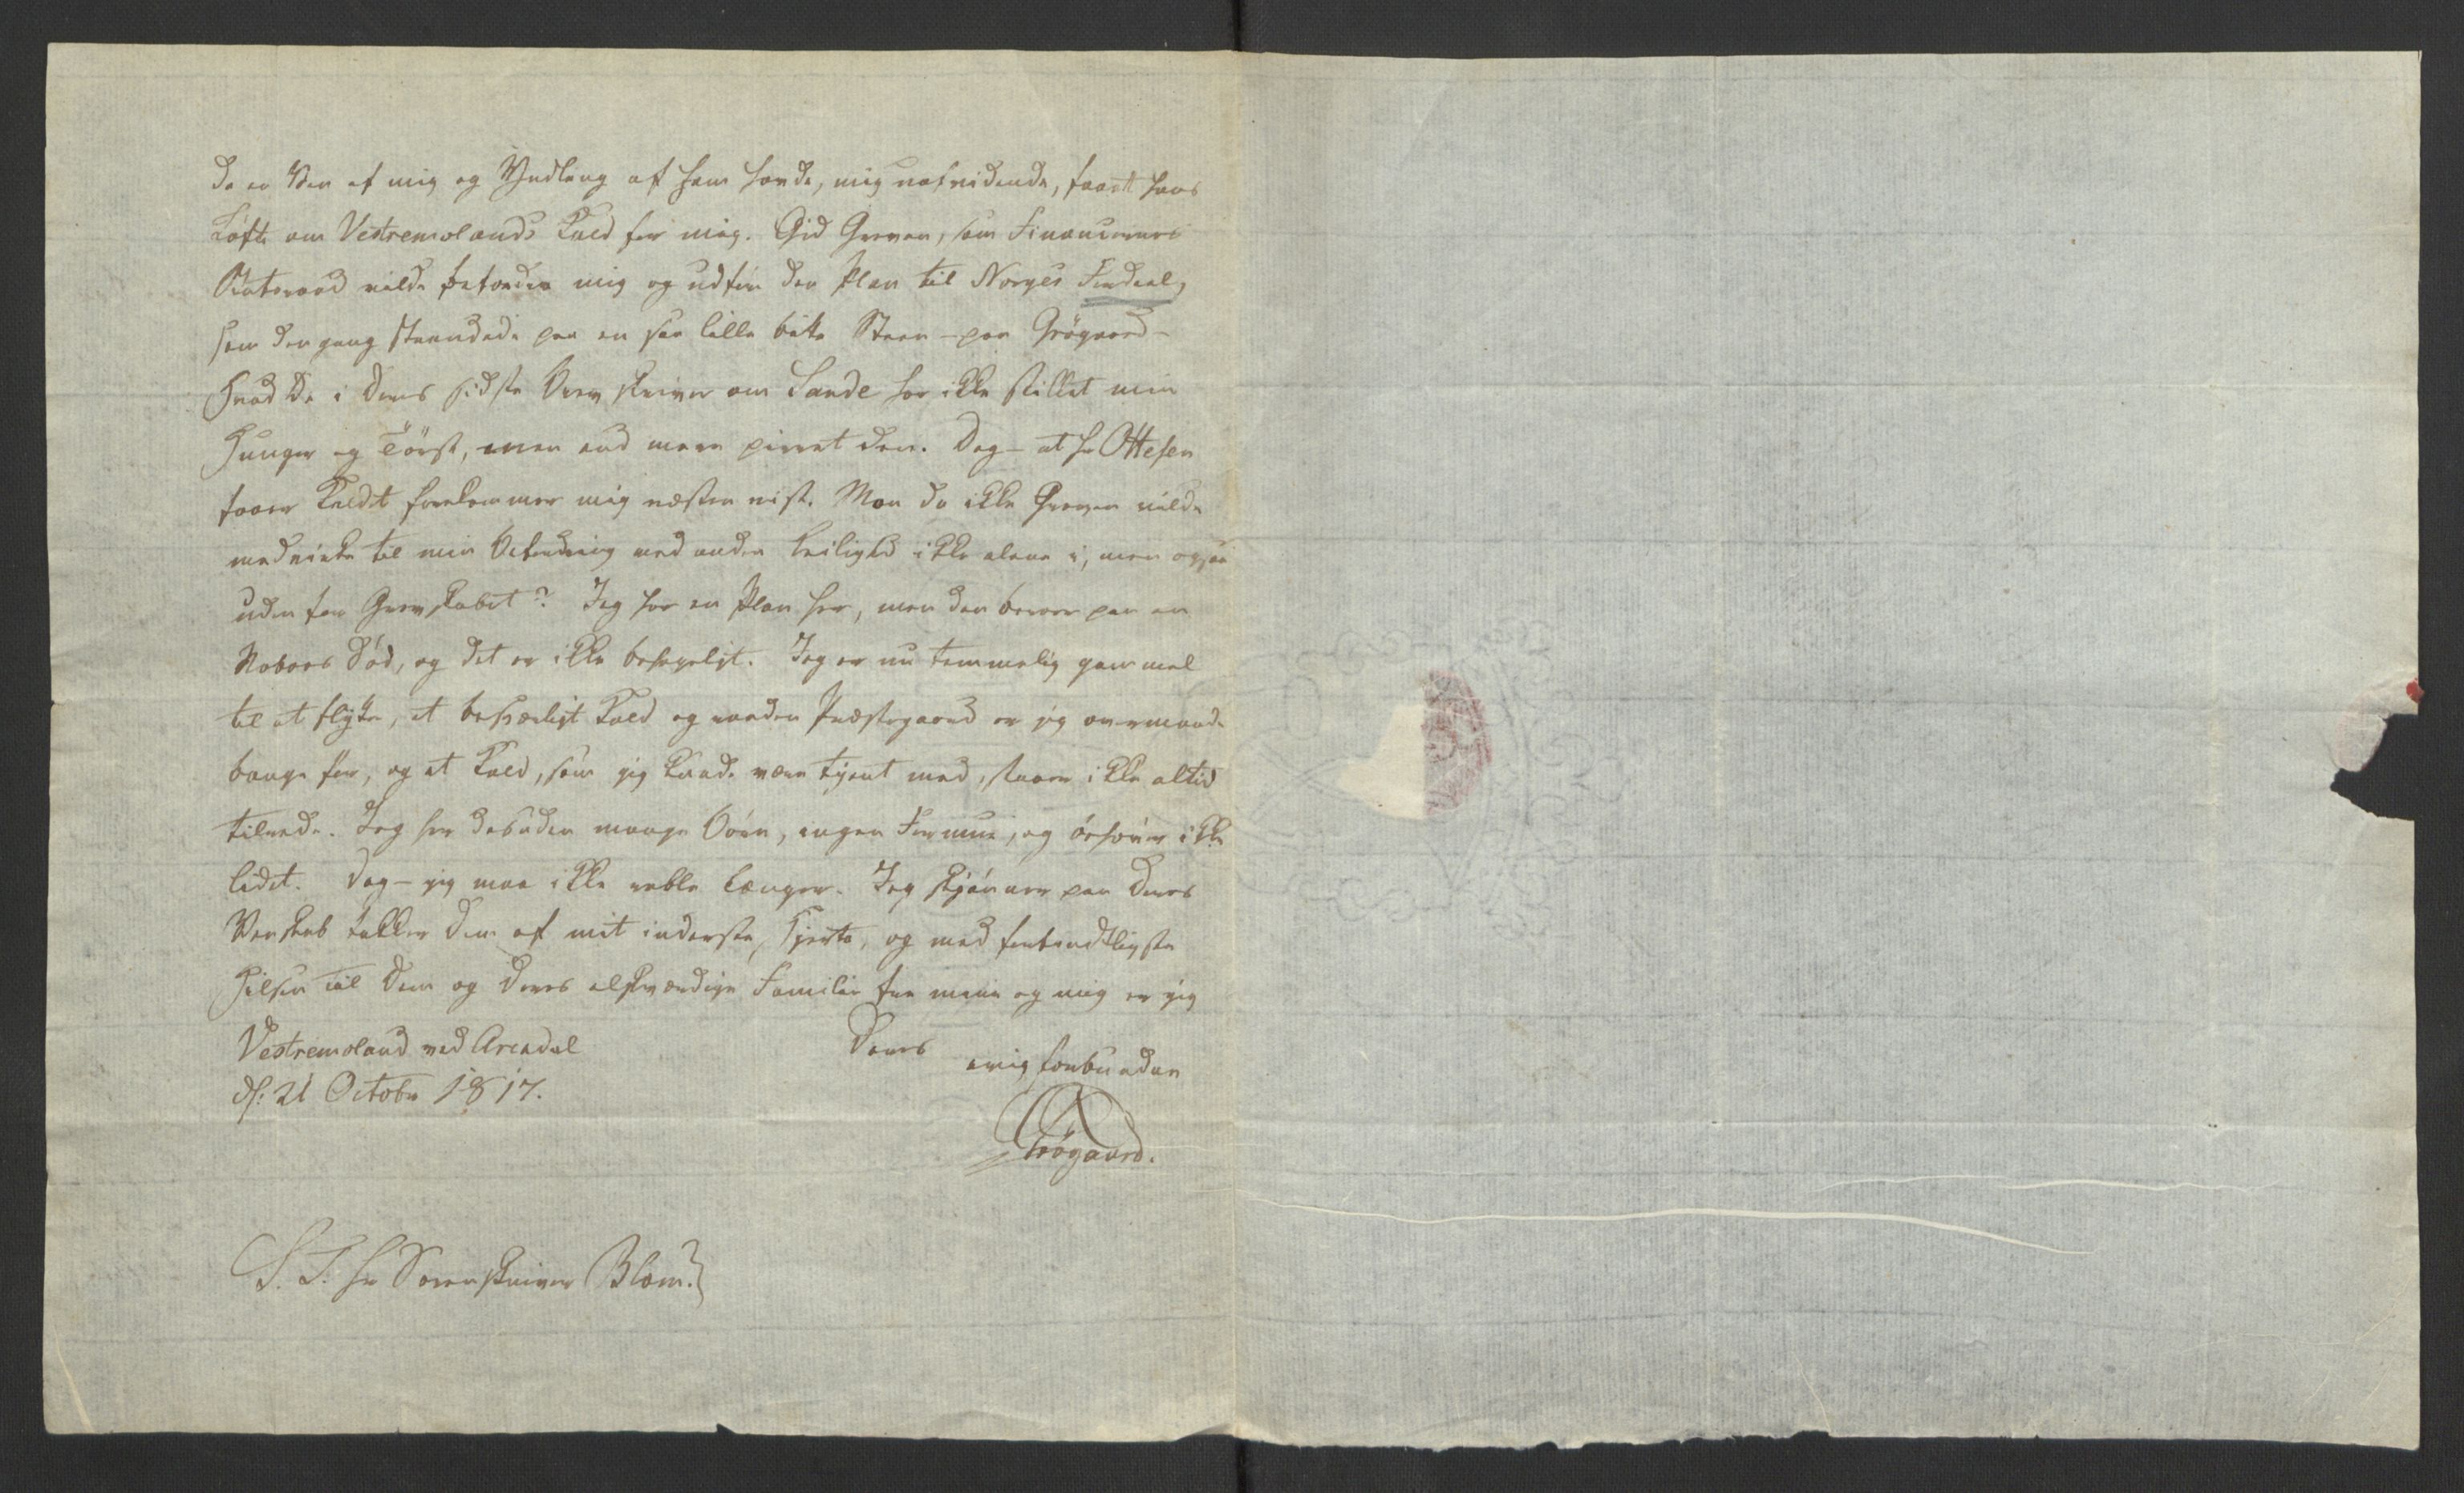 da en Ven af mig og Yndling af ham havde, mig uafvidende, faaet hans
Løfte om Vestremolands Kald for mig. Gid Greven, som Financernes
Statsraad vilde befordre mig og udføre den Plan til Norges Fordeel,
som den gang strandede paa en saa lille bitte Steen - paa Grögaard -
Hvad De i Deres sidste Brev skriver om Sande har ikke stillet min
Hunger og Törst, men end mere pirret den. Dog - at Hr Ottesen
faaer Kaldet forekommer mig næsten vist. Mon da ikke Greven vilde
medvirke til min Befordring ved anden Leilighed ikke alene i, men ogsaa
uden for Grevskabet? Jeg har en Plan her, men den beroer paa en
Naboes Död, og det er ikke behageligt. Jeg er nu temmelig gammel
til at flytte, et besværligt Kald og raaden Præstegaard er jeg overmaade
bange for, og et Kald, som jeg kunde være tjent med, staaer ikke altid
tilrede. Jeg har desuden mange Börn, ingen Formue, og behöver ikke
lidet. Dog - jeg maa ikke vable længer. Jeg skjönner paa Deres
Venskab takker Dem af mit inderste Hjerte, og med forbindtligste
Hilsen til Dem og Deres elskværdige Familie fra mine og mig er jeg
Vestremoland ved Arendal
d: 21 Octobr 1817.
Deres
evig forbundne
Grögaard.
S. T. Hr Sorenskriver Blom.